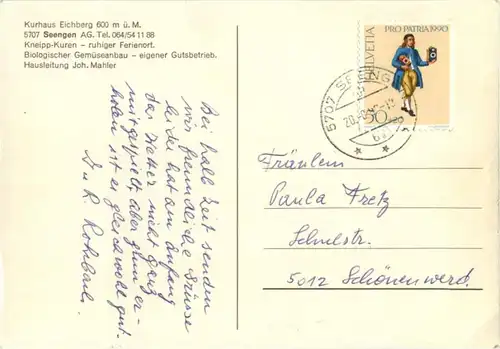 Kurhaus Eichberg 600 m ü. M.
5707 Seengen AG. Tel. 064/54 11 88
Kneipp-Kuren – ruhiger Ferienort.
Biologischer Gemüseanbau – eigener Gutsbetrieb.
Hausleitung Joh. Mahler
Bei halb Zeit senden
wir freundliche Grüsse
leider hat am Anfang
das Wetter nicht ganz
mitgespielt aber zum er-
holen ist es gleichwohl gut.
D u R. Rohrbach.
HELVETIA
PRO PATRIA 1990
50
5707 SEENGEN
Fräulein
Paula Fretz
Schulstr.
5012 Schönenwerd.